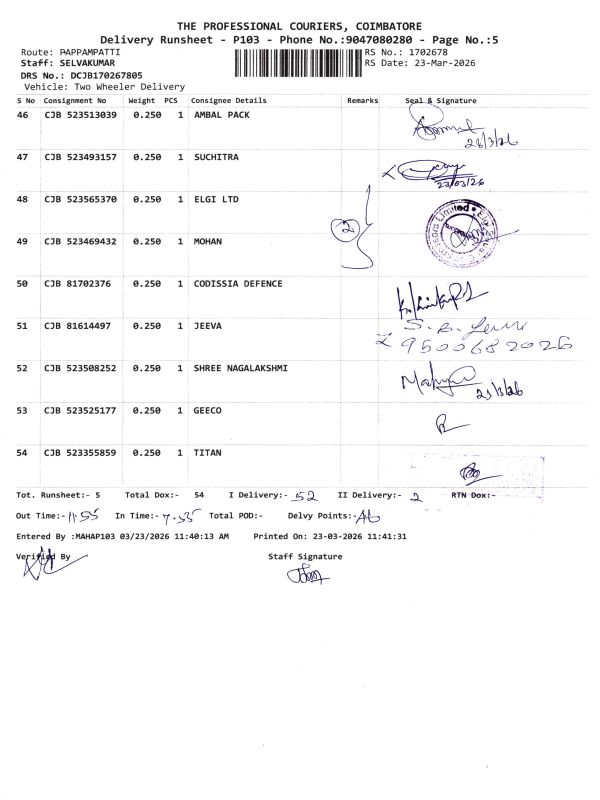 THE PROFESSIONAL COURIERS, COIMBATORE
Delivery Runsheet - P103 - Phone No.:9047080280 - Page No.:5
Route: PAPPAMPATTI RS No.: 1702678
Staff: SELVAKUMAR RS Date: 23-Mar-2026
DRS No.: DCJB170267805
Vehicle: Two Wheeler Delivery
S No Consignment No Weight PCS Consignee Details Remarks Seal & Signature
46 CJB 523513039 0.250 1 AMBAL PACK
47 CJB 523493157 0.250 1 SUCHITRA
23/03/26
48 CJB 523565370 0.250 1 ELGI LTD
2
49 CJB 523469432 0.250 1 MOHAN
50 CJB 81702376 0.250 1 CODISSIA DEFENCE
51 CJB 81614497 0.250 1 JEEVA
9500682026
52 CJB 523508252 0.250 1 SHREE NAGALAKSHMI
53 CJB 523525177 0.250 1 GEECO
54 CJB 523355859 0.250 1 TITAN
Tot. Runsheet:- 5 Total Dox:- 54 I Delivery:- 52 II Delivery:- 2 RTN Dox:-
Out Time:- 11.55 In Time:- 7.35 Total POD:- Delvy Points:- 46
Entered By :MAHAP103 03/23/2026 11:40:13 AM Printed On: 23-03-2026 11:41:31
Verified By Staff Signature